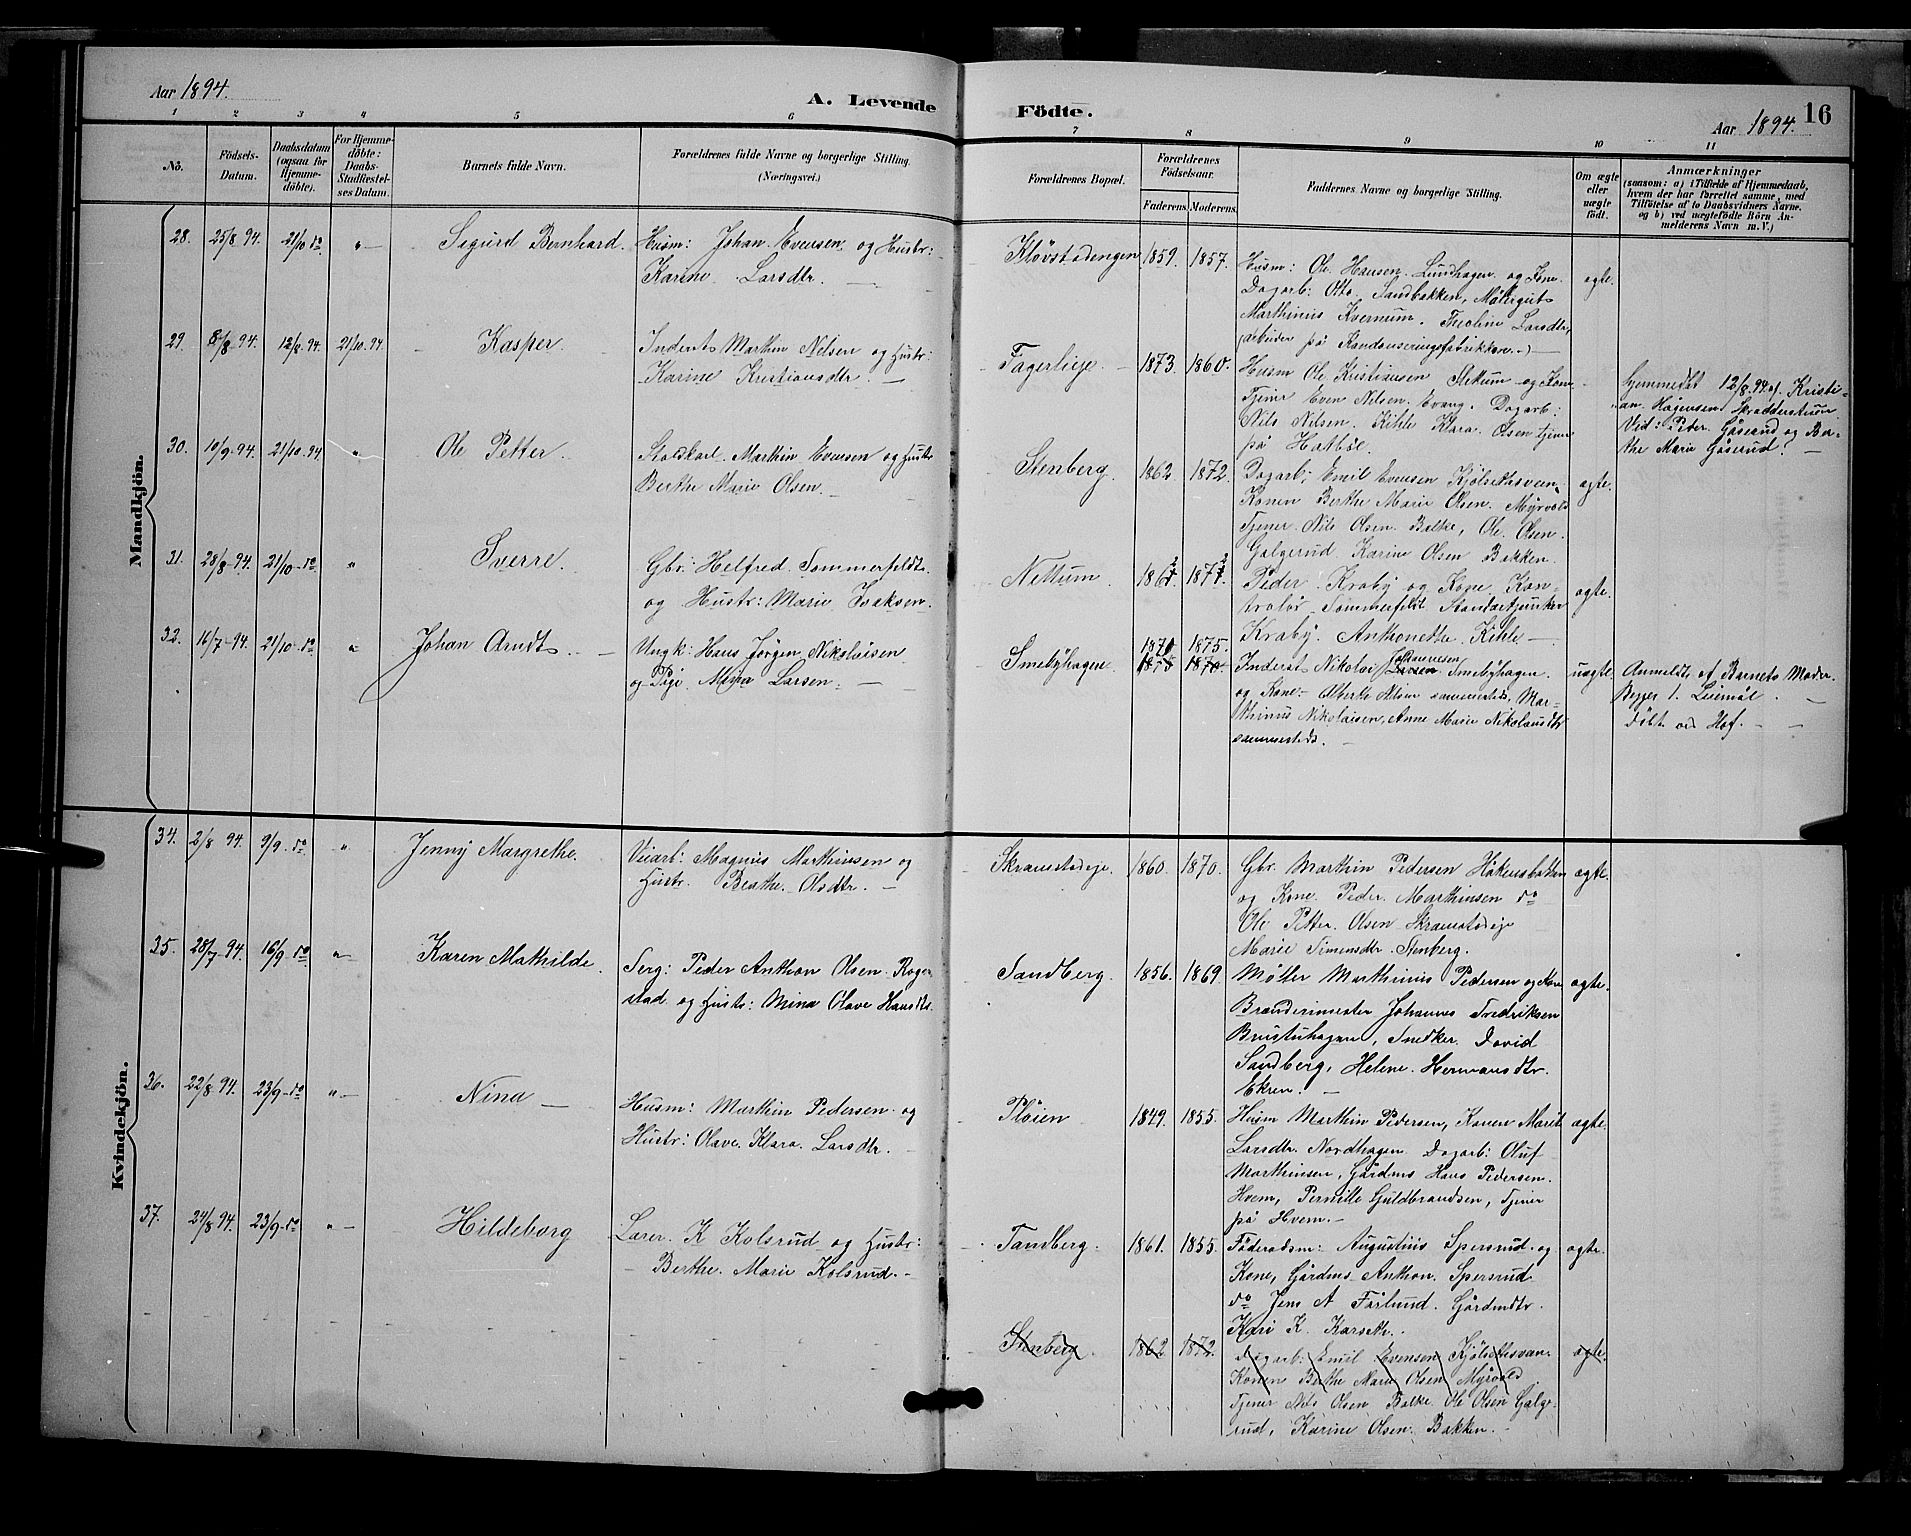 Aar 1894.
A. Levende
Födte.
Aar 1894.
16
1 2 3 4 5 6
7 8 9 10 11
No.
Födsels-
Datum.
Daabsdatum
(ogsaa for
Hjemme-
döbte).
For Hjemme-
döbte:
Daabs-
Stadfæstel-
ses Datum.
Barnets fulde Navn.
Forældrenes fulde Navne og borgerlige Stilling.
(Næringsvei.)
Forældrenes Bopæl.
Forældrenes
Födselsaar.
Faderens. Moderens.
Faddernes Navne og borgerlige Stilling.
Om ægte
eller
uægte
födt.
Anmærkninger
(saasom: a) i Tilfælde af Hjemmedaab,
hvem der har forrettet samme, med
Tilföielse af to Daabsvidners Navne,
og b) ved uægtefödte Börn An-
melderens Navn m. V.)
Mandkjön.
28. 25/8. 94. 21/10 do " — Sigurd Bernhard. Husm: Johan Evensen og Hustr:
Karine Larsdtr. —
Kløvstadengen 1859. 1857. Husm: Ole Hansen Lundhagen og Kone
Dagarb: Otto Sandbakken, Målergut
Marthinius Kvernum. Theoline Larsdtr,
(arbeider på Kondenseringsfabrikken.) —
ægte.
29. 8/8. 94. 12/8. 94. 21/10. 94. Kasper. Inderst Marthin Nilsen og Hustr:
Karine Kristiansdtr. —
Fagerlieje. 1873. 1860. Husm Ole Kristiansen Stettum og Kone
Tjener Even Nilsen. Evang. Dagarb:
Nils Nilsen. Kihle Klara Olsen tjener
på Hotbøl.
Hjemmedøbt 12/8. 94 af Kristi-
an Hågensen Skrædderstuen
Vid: Peder Gåserud og Ber-
the Marie Gåserud. —
30. 10/9. 94. 21/10. 94 " Ole Petter. Staldkarl Marthin Evensen og Hustr
Berthe Marie Olsen. —
Stenberg. 1862. 1872. Dagarb: Emil Evensen Kjølsethsvean
Konen Berthe Marie Olsen. Myrvold
Tjener Nils Olsen. Balke, Ole Olsen.
Galgerud. Karine Olsen Bakken.
ægte.
31. 28/8. 94. 21/10. do " Sverre. Gbr: Helfred Sommerfeldt
og Hustr: Marie Isaksen.
Nettum. Peder Kraby og Kone. Kon-
trolør Sommerfeldt Standartjunker
Kraby. Anthonette Kihle —
ægte.
32. 16/7. 94. 21/10. do " Johan Arndt. — Ungk: Hans Jørgen Nikolaisen
og Pige Mina Larsen. —
Smebyhagen 1870 1875. Inderst Nikolai Johannesen Smebyhagen.
og Kone — Alberte Olsen sammesteds, Mar-
thinus Nikolaisen, Anne Marie Nikolaisdtr
sammesteds. —
uægte. Anmeldt af Barnets Moder.
Begges 1. Leiemål —
Døbt ved Hof. — —
Kvindekjön.
34. 2/8. 94. 9/9. do " Jenny Margrethe. Veiarb: Magnus Marthinsen og
Hustr. Berthe Olsdtr. —
Skramstadeje. 1860. 1870. Gbr. Marthin Pedersen Håkensbakken
og Kone. Peder Marthinsen do
Ole Petter Olsen Skramstadeje
Marie Simensdtr. Stenberg.
ægte.
35. 28/7. 94. 16/9. do " Karen Mathilde. Serg: Peder Anthon Olsen. Roger
stad og Hustr: Mina Olave Hansdtr.
Sandberg. 1856. 1869. Møller Marthinius Pedersen og Kone
Brænderimester Johannes Fredriksen
Brustuhagen, Snedker David
Sandberg, Helene Hermansdtr.
Ekren. —
ægte.
36. 22/8. 94. 23/9. do " — Nina — Husm: Marthin Pedersen og
Hustr: Olave Klara Larsdtr.
Pløien 1849. 1855. Husm Marthin Pedersen, Konen Marit
Larsdtr. Nordhagen Dagarb: Oluf
Marthinsen, Gårdens Hans Pedersen.
Hvem, Pernille Guldbrandsen, Tjener
på Hvem. —
ægte.
37. 24/8. 94. 23/9. do " — Hildeborg Lærer K Kolsrud og Hustr:
— Berthe Marie Kolsrud. —
Tandberg. 1861. 1855. Føderådsm: Augustius Spersrud og
Kone, Gårdens Anthon Spersrud
do Jens A Førlund. Gårdmdtr.
Kari K. Karseth.
ægte.
Stenberg 1862 1872. Dagarb: Emil Evensen Kjølsethsvean.
Konen Berthe Marie Olsen Myrvold
Tjener Nils Olsen Balke Ole Olsen Galge-
rud, Karine Olsen Bakken. —
ægte.